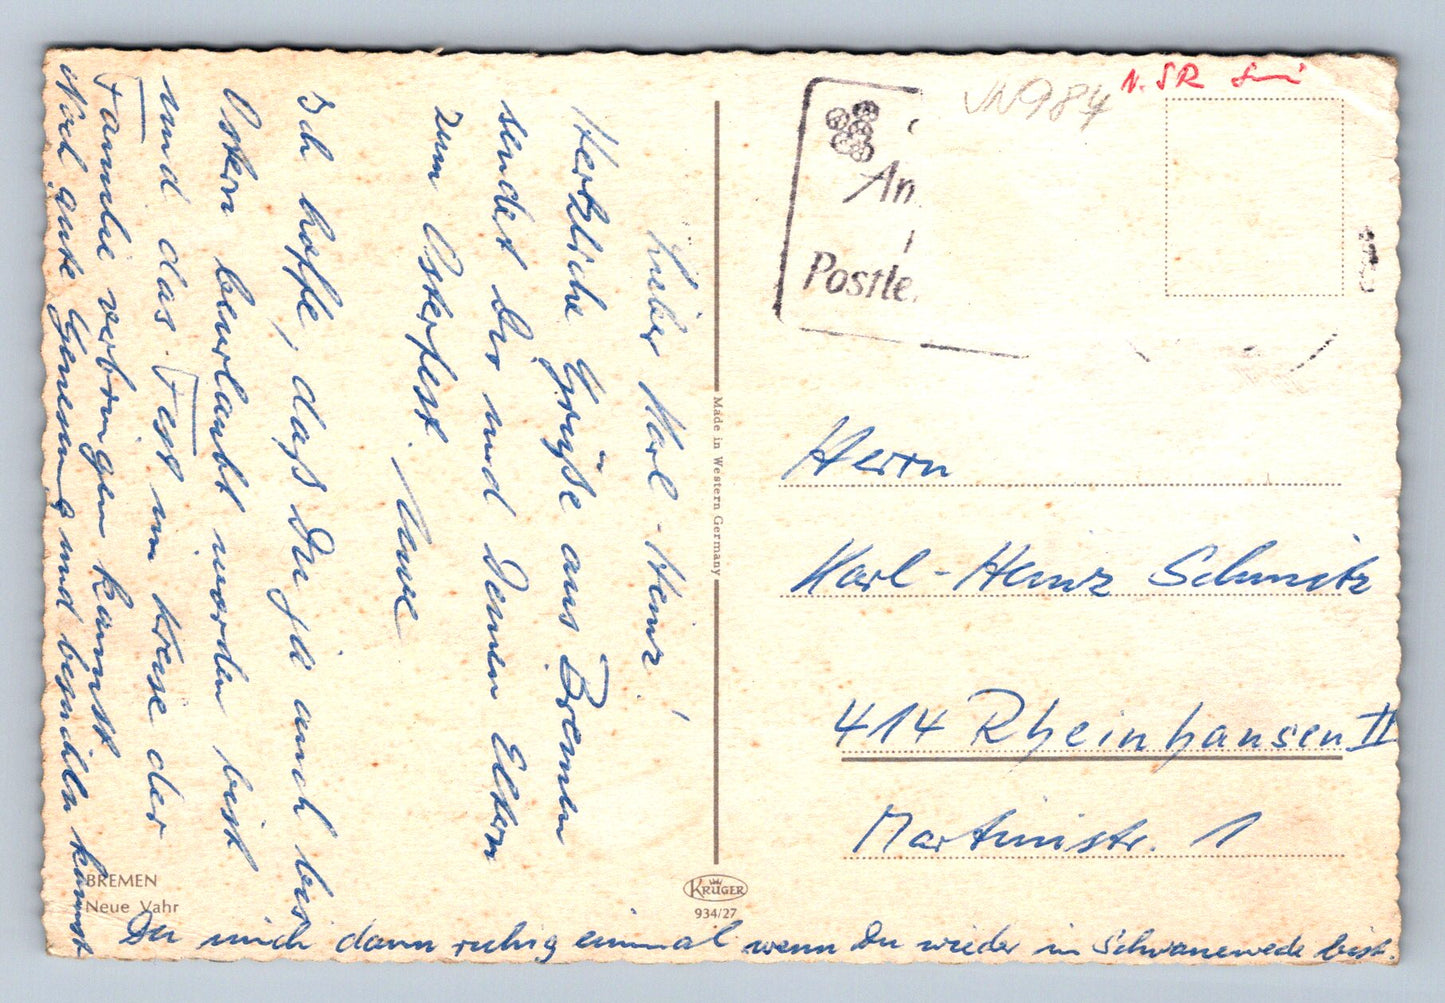 Lieber Karl-Heinz!
Herzliche Grüße aus Bremen
sendet Dir und Deinen Eltern
zum Osterfest
Uwe
Ich hoffe, daß Du ja auch bis
Ostern beurlaubt worden bist
und das Fest im Kreise der
Familie verbringen kannst.
Noch gute Genesung und
Du mich dann ruhig einmal wenn Du wieder in Schwanewede bist.
BREMEN
Neue Vahr
Made in Western Germany
KRÜGER
934/27
An
Postle
W984
Herrn
Karl-Heinz Schmitz
414 Rheinhausen II
Martinistr. 1